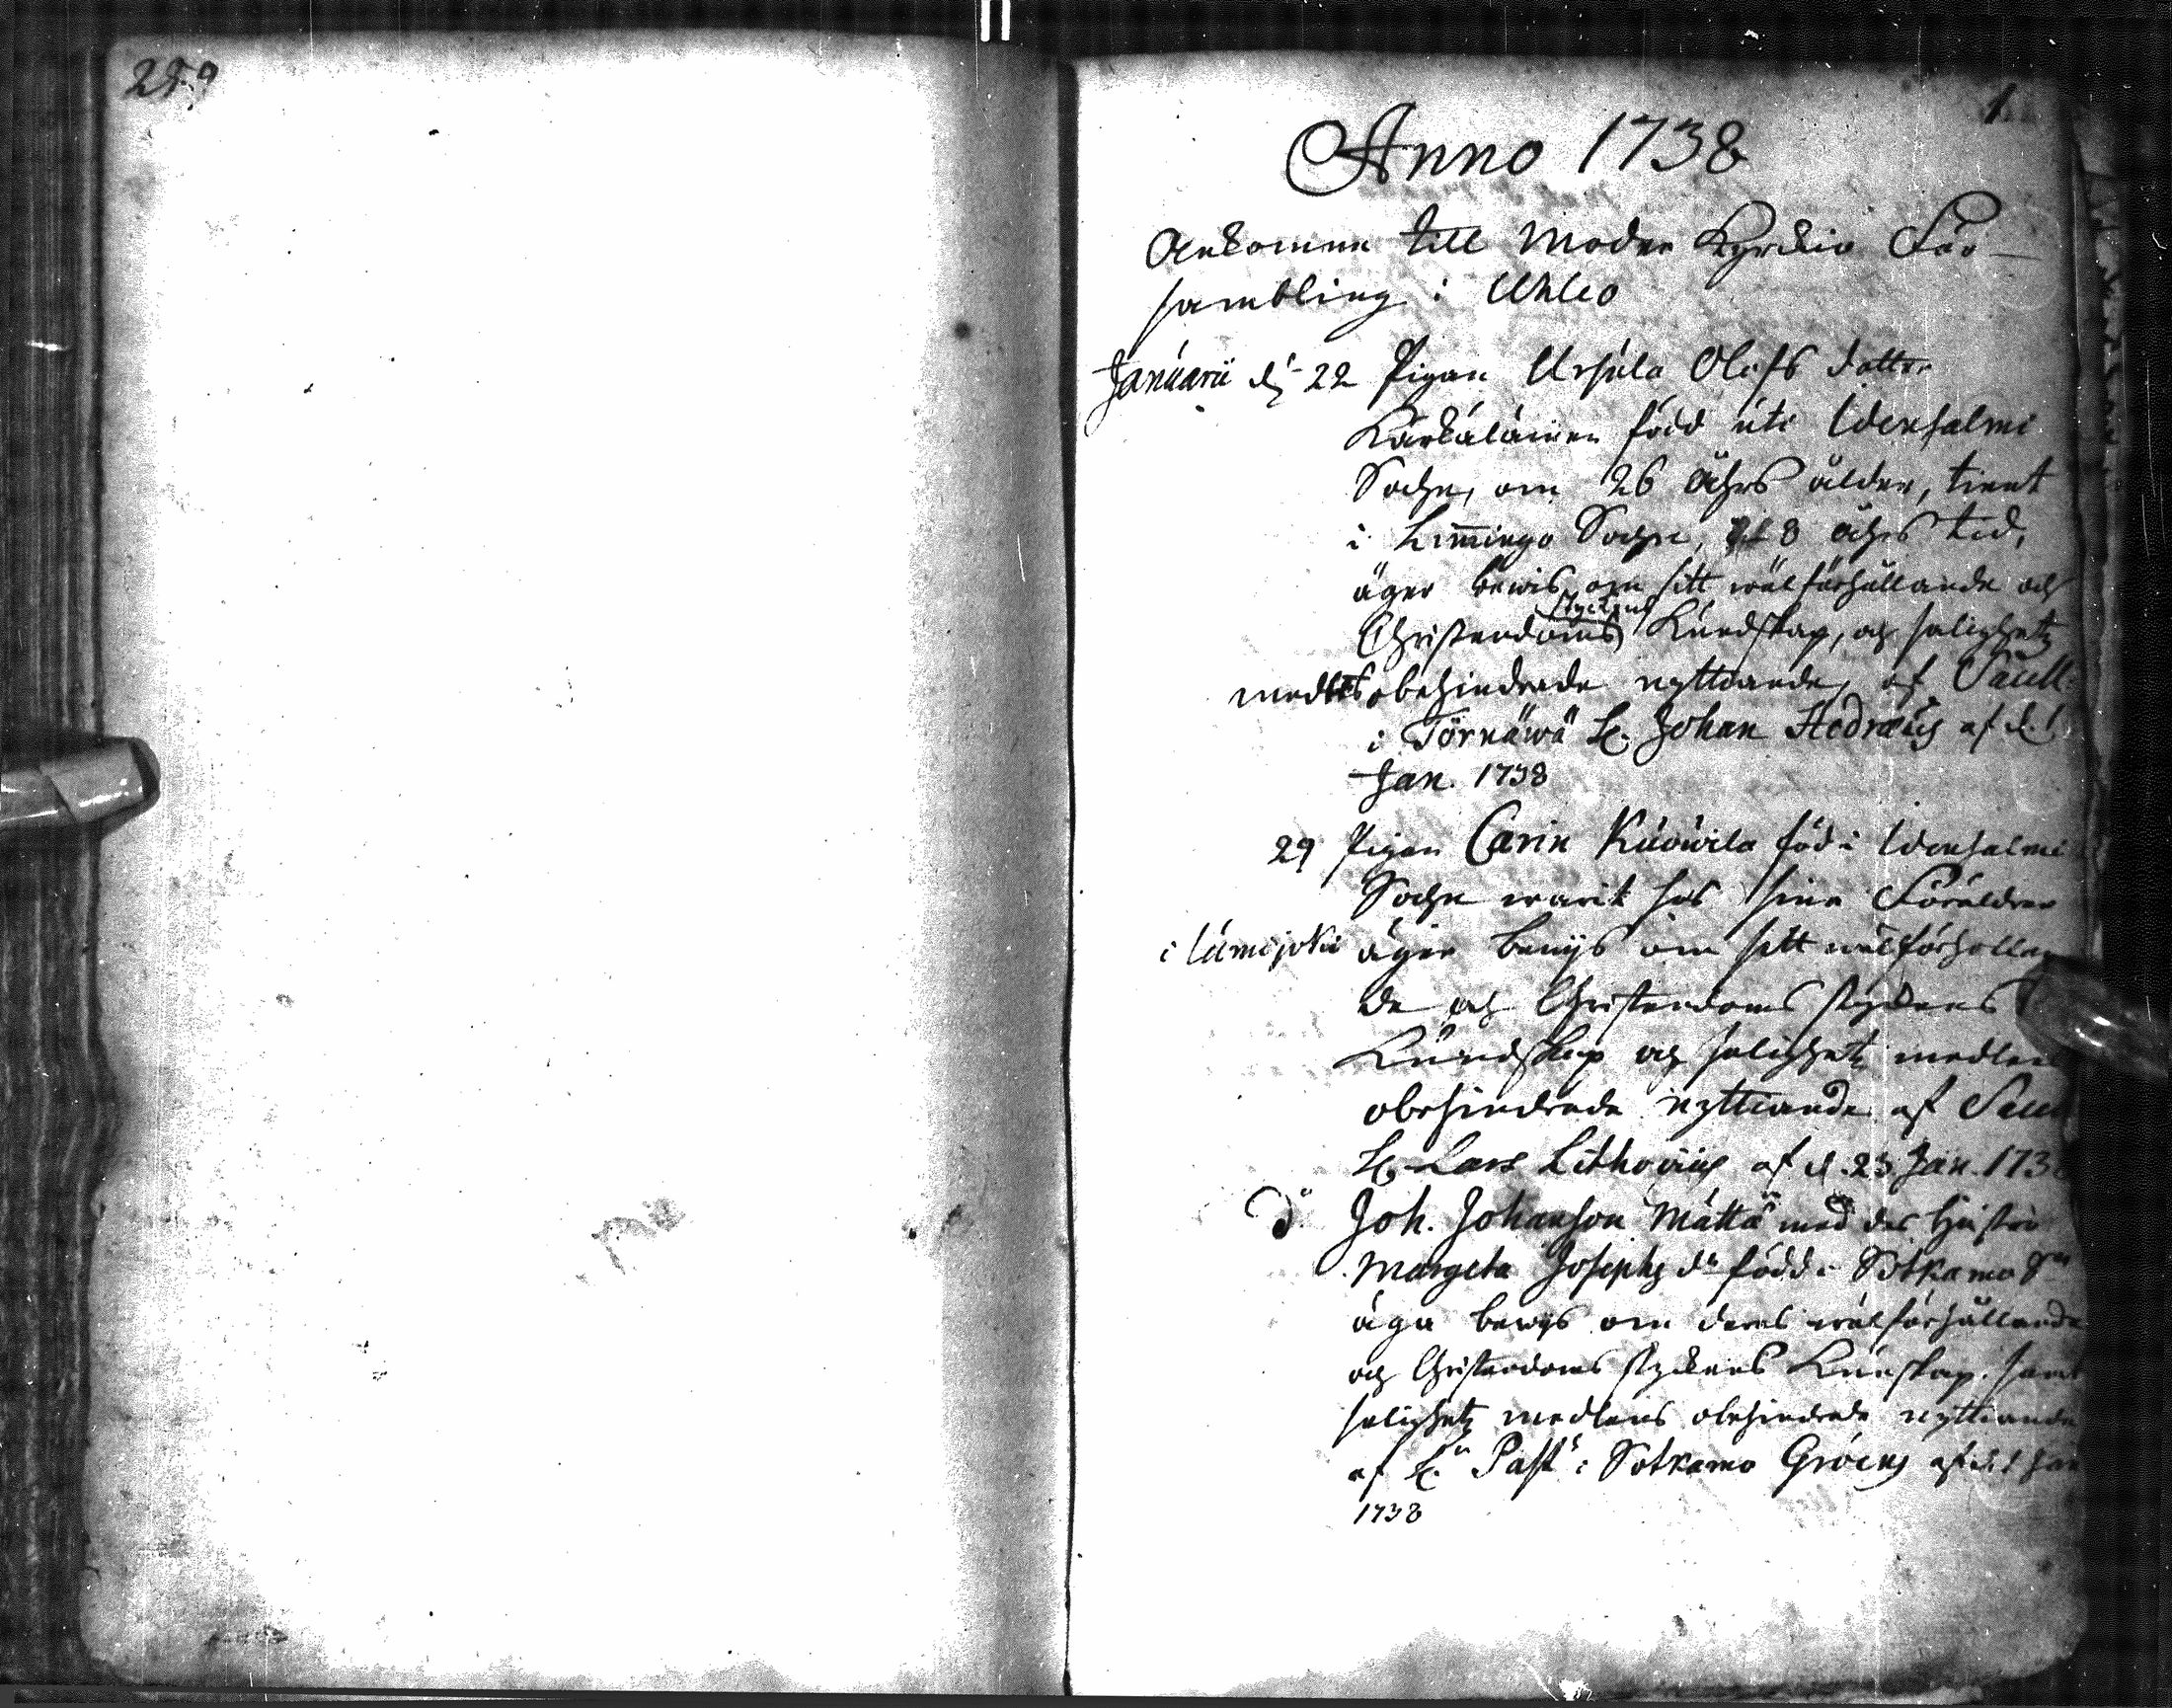 259
1
Anno 1738
Ankomne till Moder Kyrkio För-
sambling i Uhleo
Januarii d. 22 Pigan Ursula Olofs dotter
Kärkäläinen född uti Idensalmi
Sochn, om 26 åhrs ålder, tient
i Limmingo Sochn, 8 åhrs tid,
äger bewis om sitt wälförhållande och
Styckens
Christendoms Kundskap, och salighetz
medlens obehindrade nyttiande, af Sacell:
i Törnäwä H. Johan Hedræus af d. 1
Jan. 1738
29 Pigan Carin Kuowila föd i Idensalmi
Sochn warit hos sina Föräldrar
i lumijoki äger bewijs om sitt wälförhollan
de och Christendoms styckens
Kundskap och salighetz medlens
obehindrade nyttiande af Sacell
H. Lars Lithovius af d. 23 Jan. 1738
do Joh. Johansson Mättä med des hustro
Margeta Josephs dr född i Sotkamo Sn
äga bewijs om deras wälförhållande
och Christendoms styckens Kunskap samt
salighetz medlens obehindrade nyttiande
af H. Past. i Sotkamo Gröen af d. 1 Jan
1738